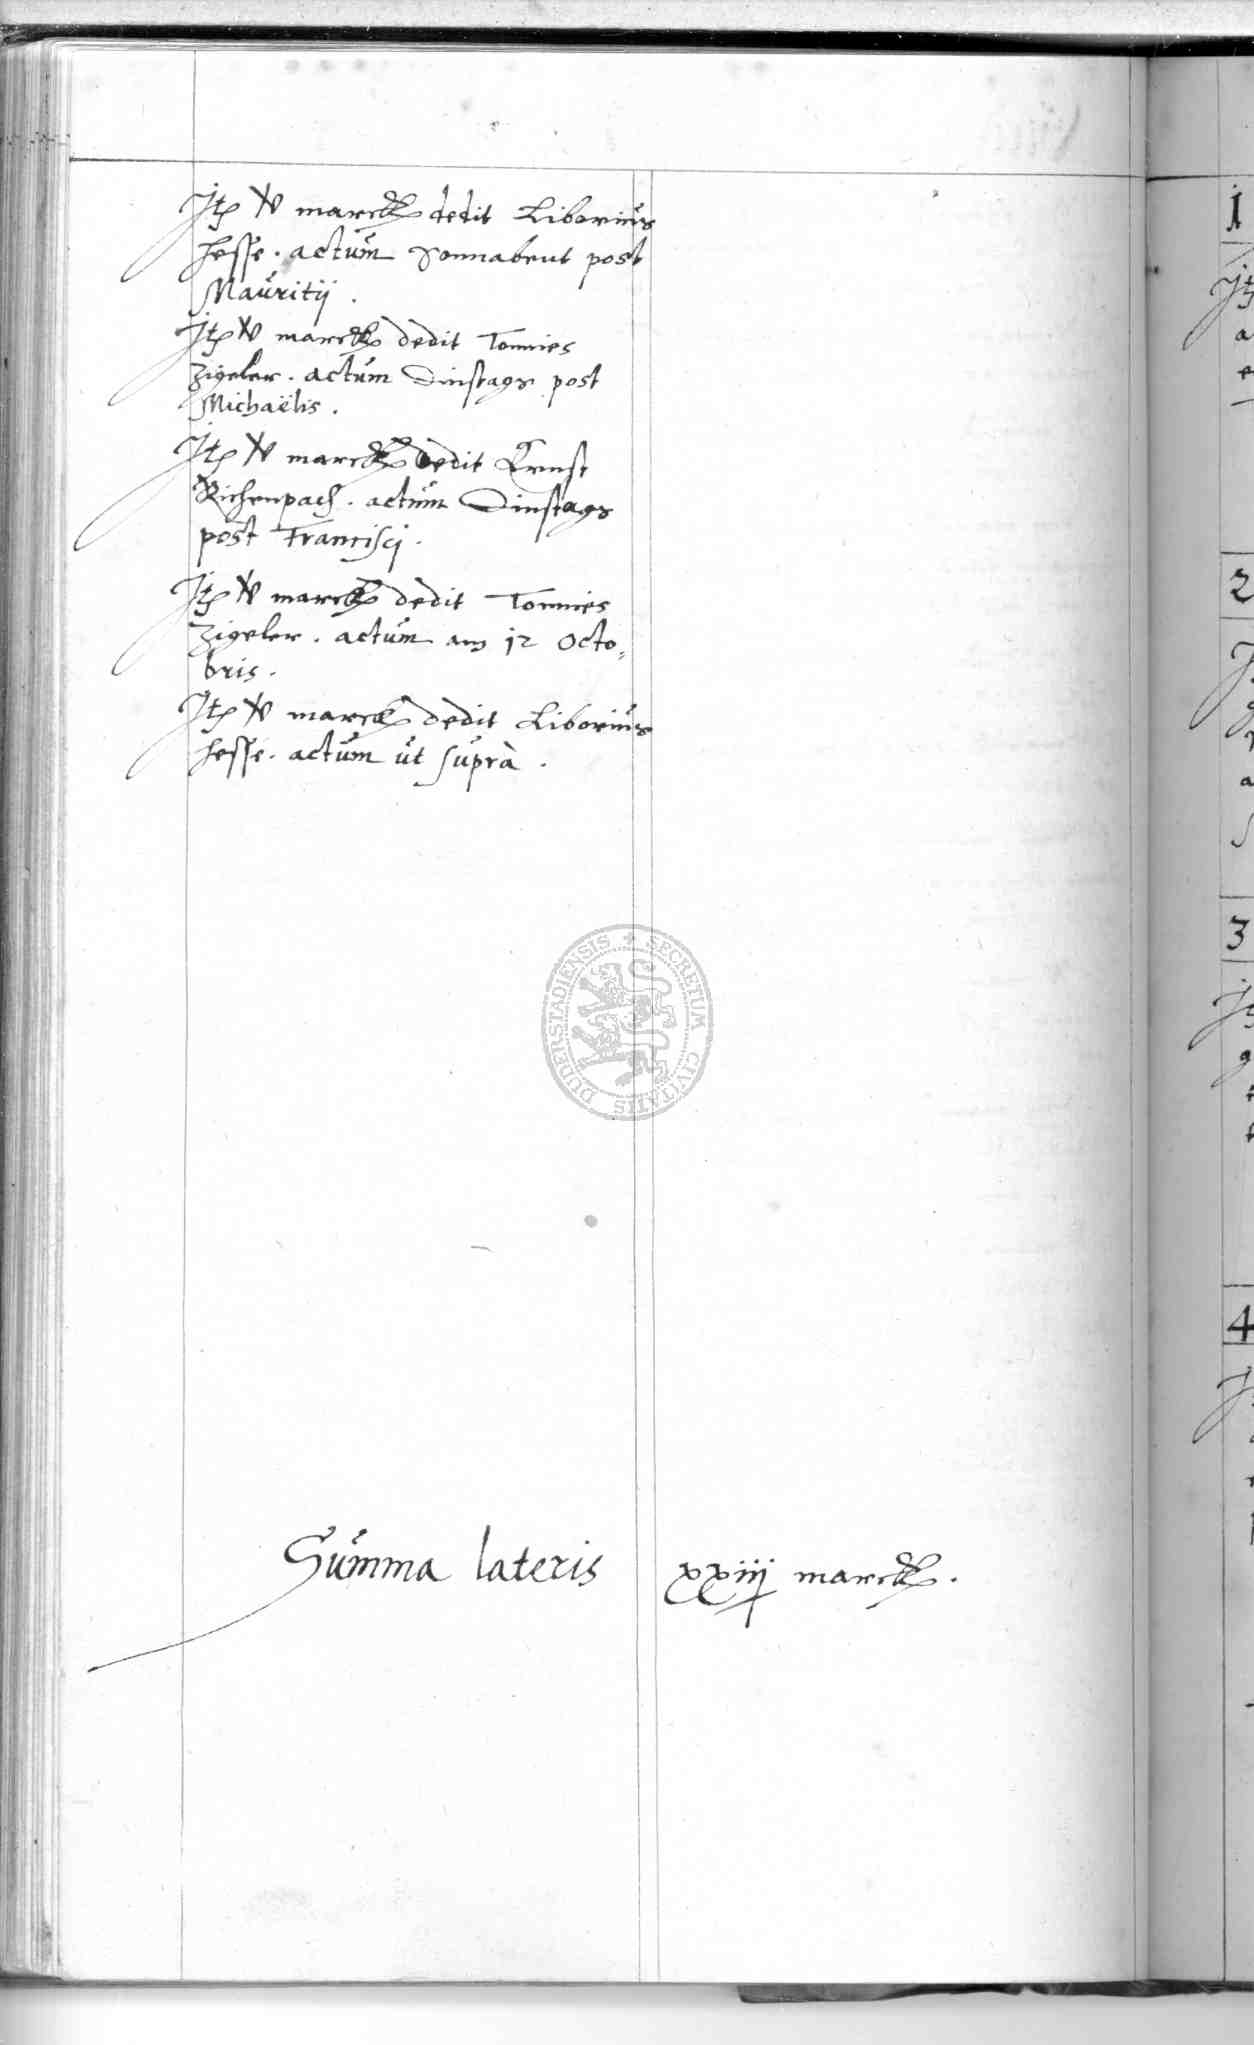 Jtꝭ v̷ marck dedit Liborius
Hesse . actum Sonnabent post
Mauritij .
Jtꝭ v̷ marck dedit Tonnies
Zigeler . actum Dinstags post
Michaëlis .
Jtꝭ v̷ marck dedit Ernst
Richenpach . actum Dinstags
post Francisci .
Jtꝭ v̷ marck dedit Tonnies
Zigeler . actum am 12 Octo=
bris .
Jtꝭ v̷ marck dedit Liborius
Hesse . actum ut suprà .
SECRETUM CIVITATIS DUDERSTADIENSIS
Summa lateris xxiij̷ marck .
1
2
3
4